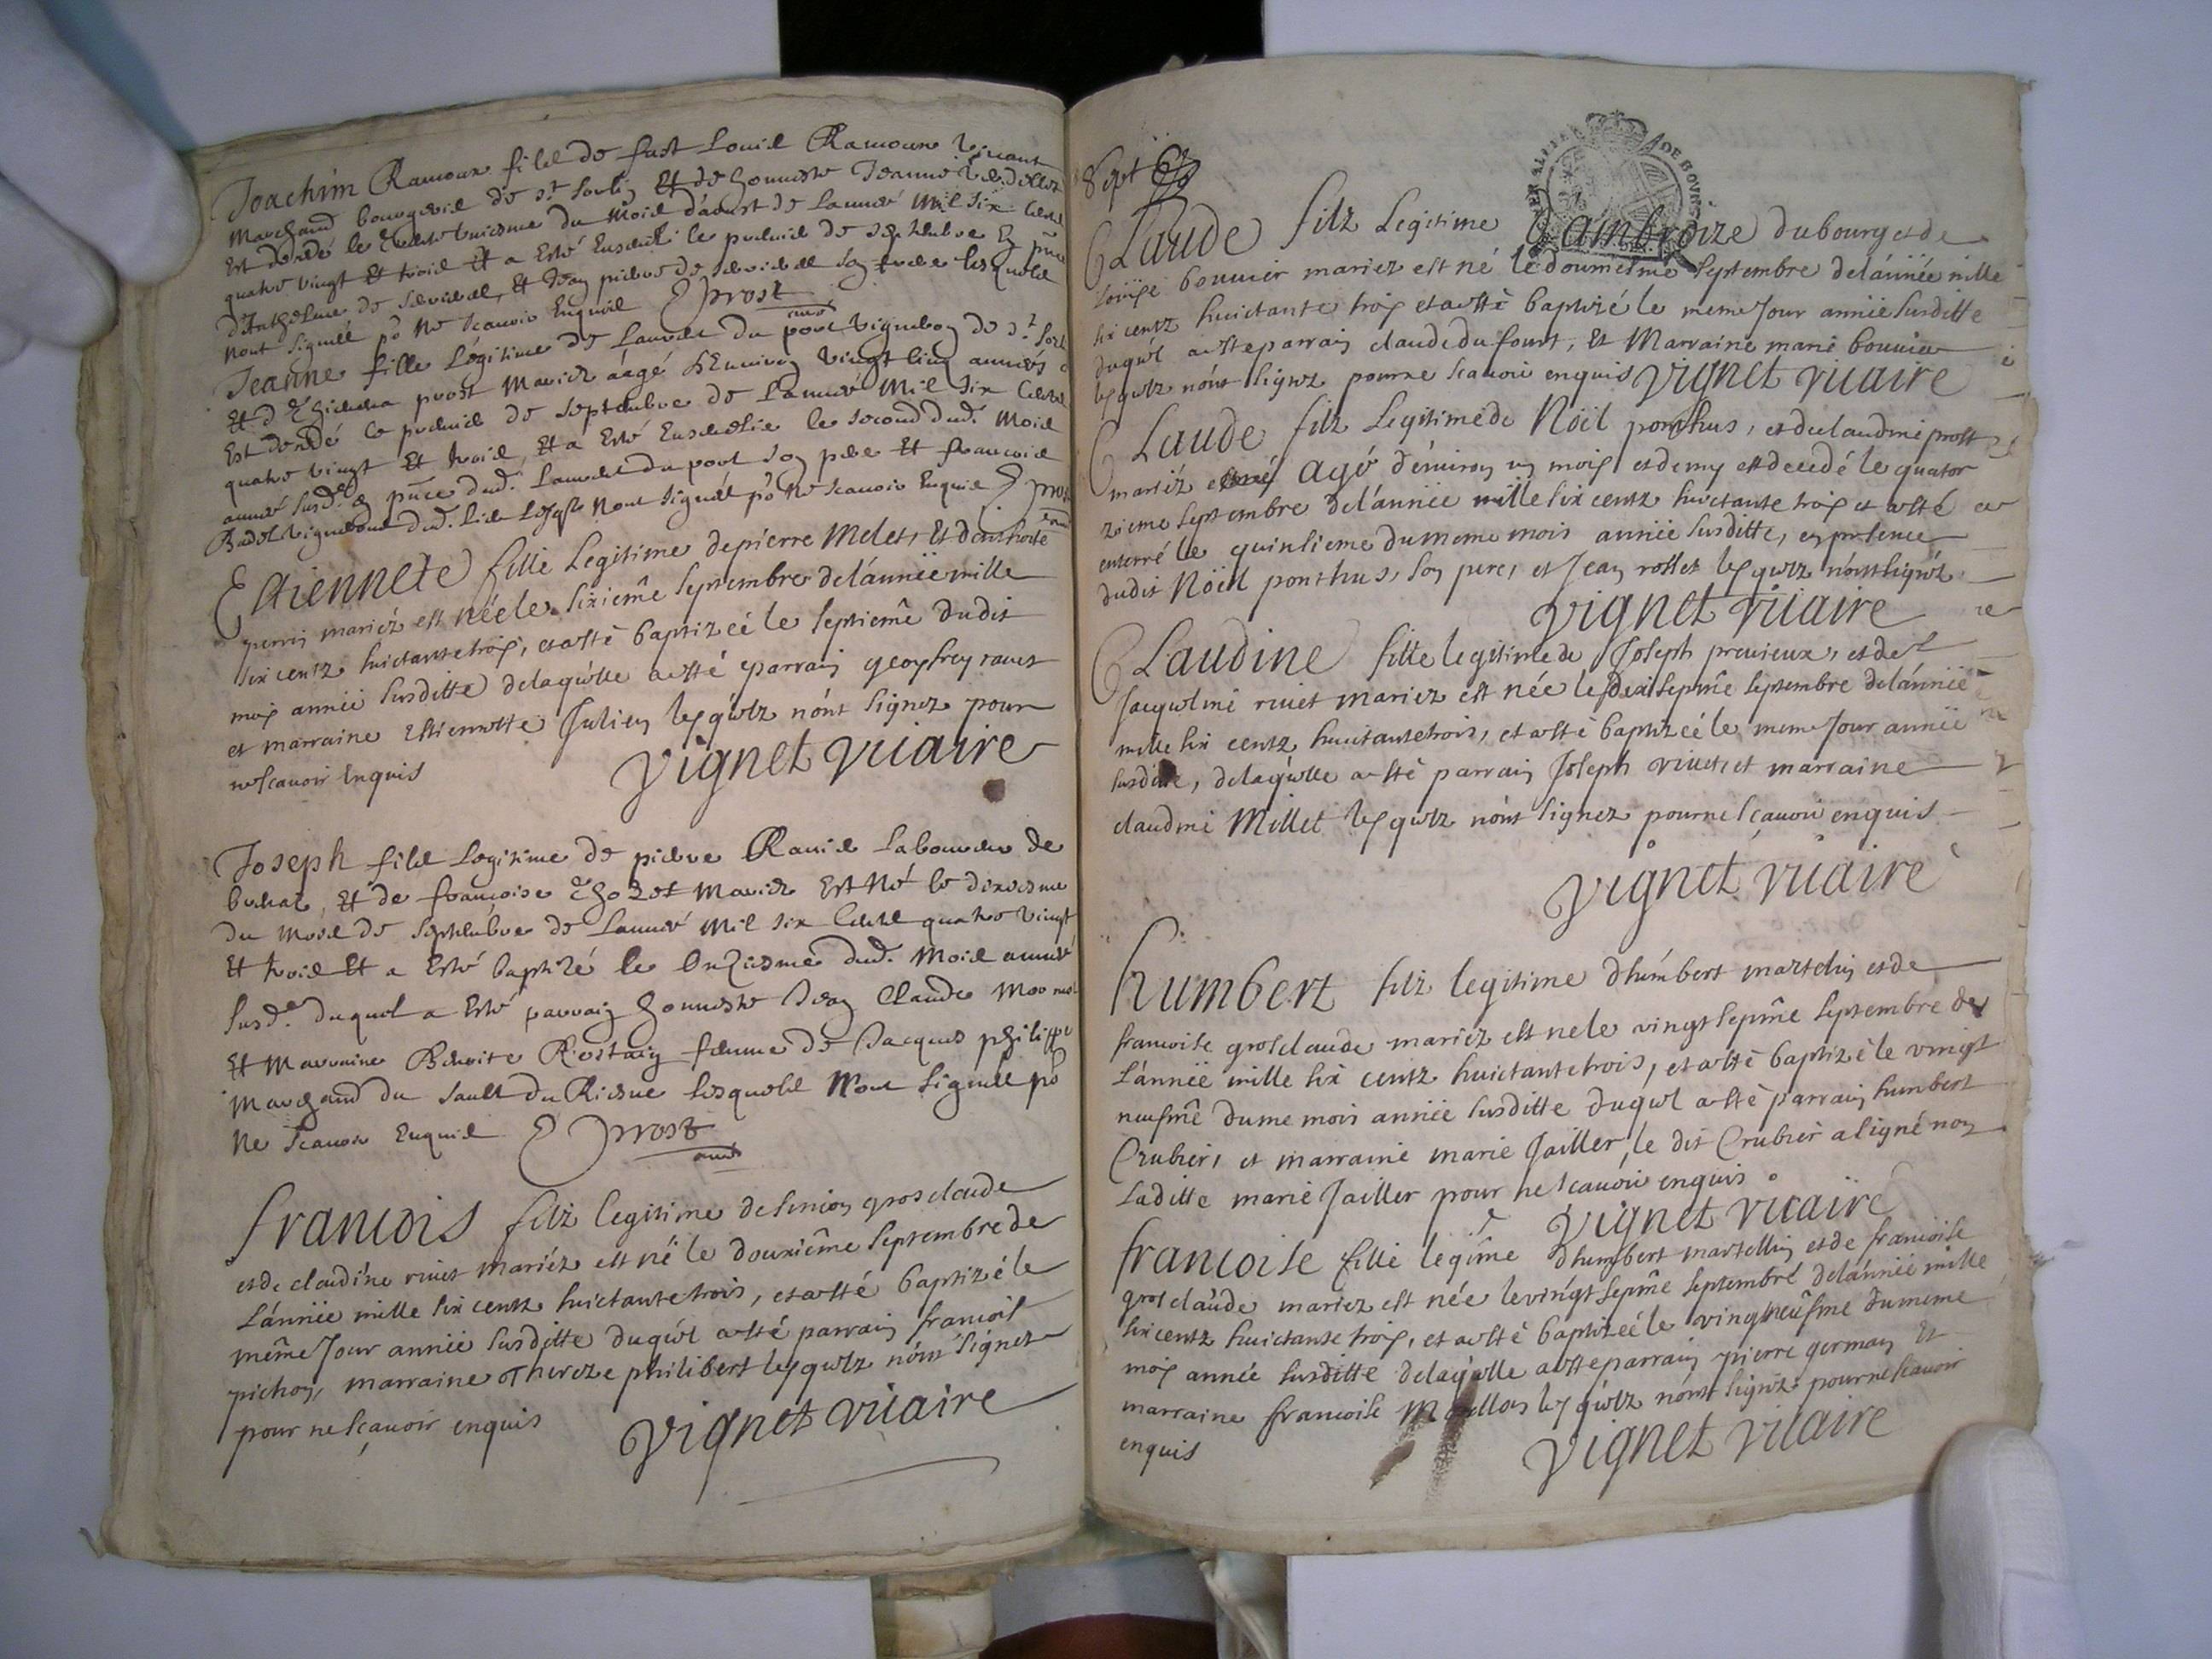 Joachim Ramoux filz de fust Louis Ramoux vivant
Marchand bourgeois de st Sorlin Et de honneste Jeanne
Est decedé le trente uniesme du Mois d'aoust de Lannée Mil six Cents
quatre vingt Et trois Et a Esté Ensevely le premier de septembre En pnce
d'Anthelme de et Jean pierre de son frere lesquels
n'ont signéz po Ne scavoir Enquis Prost curé
Jeanne fille Légitime de Laurent du pont vigneron de st Sorlin
Et d prost Mariez aagé d'Environ vingt cinq années
Est decedé le premier de septembre de Lannée Mil six Cents
quatre vingt Et trois, Et a Esté Ensevelie le second dud. Mois
année susd.e En pnce dud. Laurent du pont son pere Et francois
Badol vigneron dud. Lieu Lesqls Nont signéz po Ne scavoir Enquis Prost curé
Estiennete fille Legitime de pierre Melet, Et d'
perrin mariéz est née le sixiême septembre de l'année mille
six centz huictante trois, et a esté baptizéé le septiême dudit
mois année susditte de laquelle a esté parrain geoffrey ravet
et marraine Estiennette Julien lesquelz n'ont signez pour
ne scavoir Enquis vignet vicaire
Joseph filz Legitime de pierre Ravier Laboureur de
Et de francoise Chozet Mariez Est Né le dixiesme
du Mois de septembre de Lannée Mil six Cents quatre vingt
Et trois Et a Esté baptizé le Onziesme dud. Mois année
susd.e duquel a Esté parrain honneste Jean Claude
Et Marraine Benoite Rostaing femme de Jacques philippe
Marchand du Sault Du Rhosne Lesquels Nont signéz po
Ne scavoir Enquis Prost curé
francois filz legitime de simion grosclaude
et de claudine rivet mariéz est né le douxiême septembre de
L'année mille six centz huictante trois, et a esté baptizé le
même Jour année susditte duquel a esté parrain francois
pichon, marraine Thereze philibert lesquelz n'ont signez
pour ne scavoir enquis vignet vicaire
Sept
Claude filz Legitime d'ambroize dubourg et de
Loüise bouvier mariez est né le doumesme septembre de l'année mille
six centz huictante trois et a esté baptizé le meme Jour année susditte
duquel a esté parrain claude dufour, Et Marraine marie bouvier
lesquelz n'ont signez pour ne scavoir enquis vignet vicaire
Claude filz Legitime de Nöel ponthus, et de claudine prost
mariéz Agé d'environ un mois et demy est decedé le quator
zieme septembre de l'année mille six centz huictante trois et a esté
enterré le quinsieme du meme mois année susditte, en presence
dudit Nöel ponthus, son pere, et Jean rosset lesquelz n'ont signéz
vignet vicaire
Claudine fille legitime de Joseph prenieux, et de
Jacqueline rivet mariez est née le dixsepme septembre de l'année
mille six centz huictante trois, et a esté baptizéé le meme Jour année
susditte, de laquelle a esté parrain Joseph rivet, et marraine
claudine Millet lesquelz n'ont signez pour ne scavoir enquis
vignet vicaire
humbert filz legitime d'humbert martelin et de
francoise grosclaude mariez est né le vingt sepme septembre de
L'année mille six centz huictante trois, et a esté baptizé le vingt
neufme du me mois année susditte duquel a esté parrain humbert
Crubier, et marraine marie Jailler, le dit Crubier a signé non
laditte marie Jailler pour ne scavoir enquis.
vignet vicaire
francoise fille legime d'humbert martellin et de francoise
grosclaude mariez est née le vingt sepme septembre de l'année mille
six centz huictante trois, et a esté baptizéé le vingt neufme du meme
mois année susditte de laquelle a esté parrain pierre german Et
marraine francoise lesquelz n'ont signéz pour ne scavoir
enquis vignet vicaire